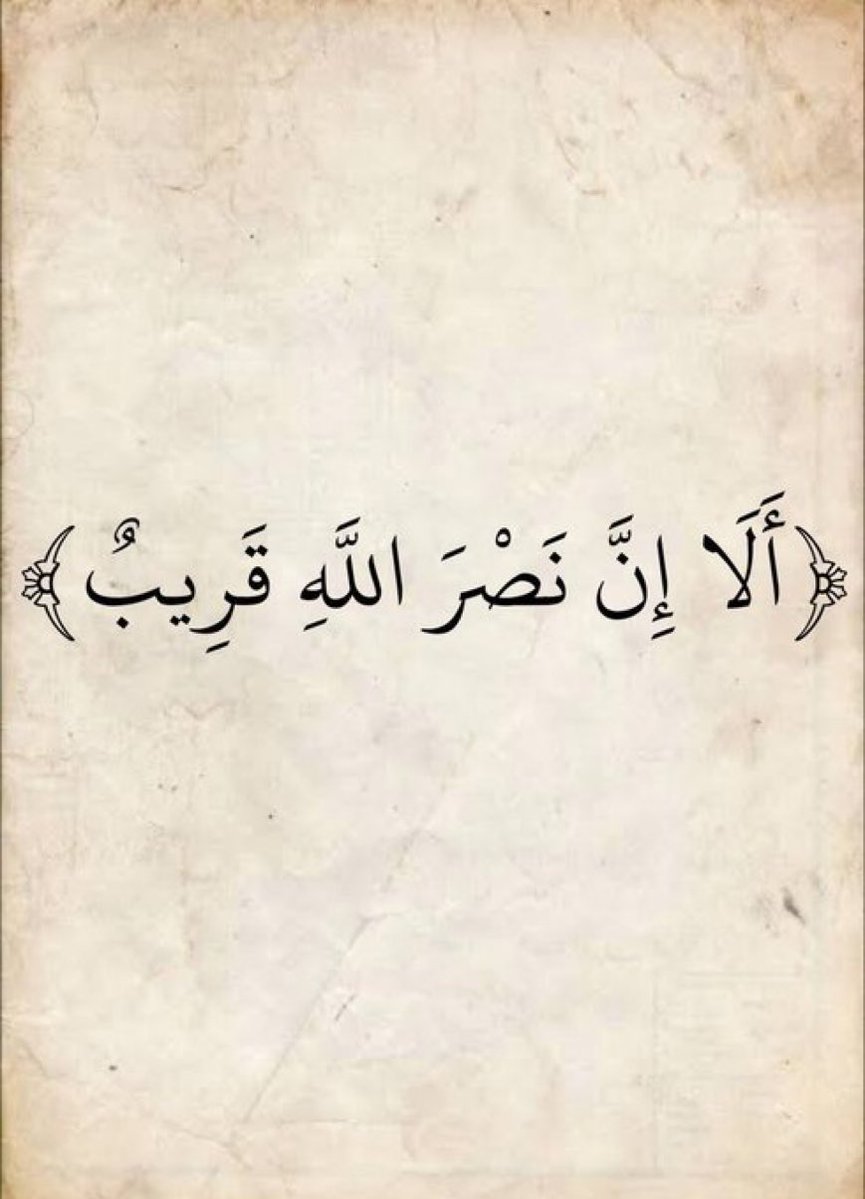 ﴿أَلَا إِنَّ نَصْرَ اللَّهِ قَرِيبٌ﴾